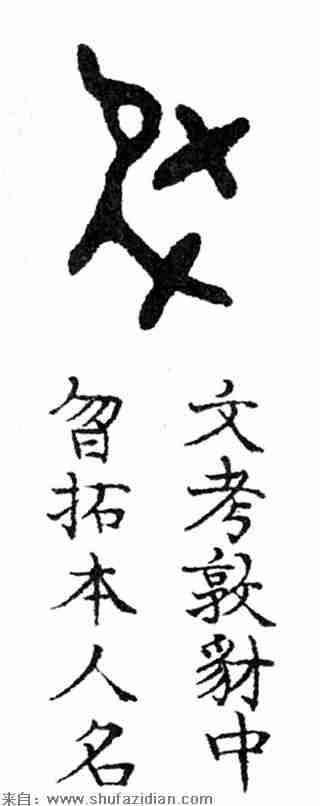 文考敦豺中
曶拓本人名
来自：www.shufazidian.com